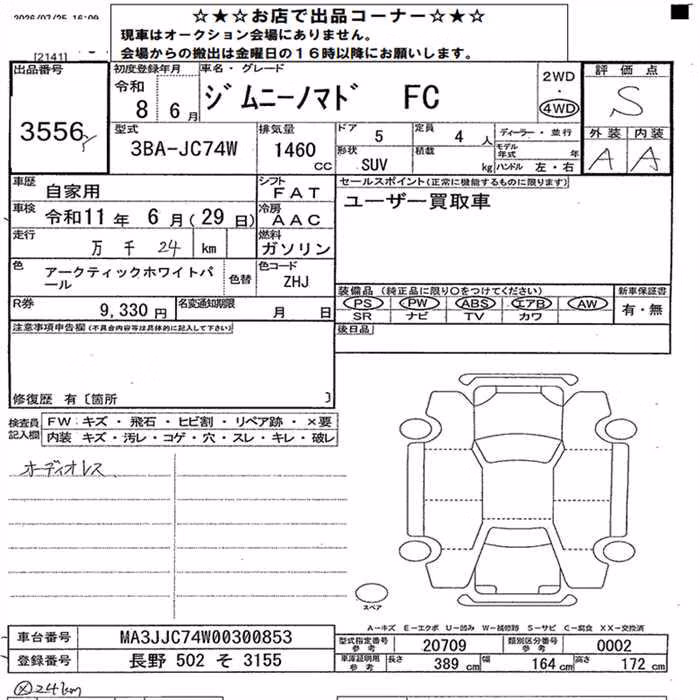 2026/07/25 16:09
☆★☆お店で出品コーナー☆★☆
現車はオークション会場にありません。
会場からの搬出は金曜日の16時以降にお願いします。
[2141]
出品番号
3556
初度登録年月
令和
8 6月
車名・グレード
ジムニーノマド FC
2WD
・
4WD
評価点
S
外装 内装
A A
型式
3BA-JC74W
排気量
1460
CC
ドア 5
定員 4 人
形状 SUV
積載 kg
ディーラー・並行
モデル年式 年
ハンドル 左・右
車歴 自家用
シフト FAT
車検 令和11年 6月(29日)
冷房 AAC
走行 万 千 24 km
燃料 ガソリン
色 アークティックホワイトパール
色替
色コード ZHJ
R券 9,330円
名変通知期限 月 日
セールスポイント(正常に機能するものに限ります)
ユーザー買取車
装備品 (純正品に限り○をつけてください)
PS PW ABS エアB AW
SR ナビ TV カワ
新車保証書
有・無
後日品
注意事項申告欄(不具合内容等は具体的に記入して下さい)
修復歴 有〔箇所 〕
検査員記入欄
FW: キズ ・ 飛石 ・ ヒビ割 ・ リペア跡 ・ ×要
内装 キズ・汚レ・コゲ・穴・スレ・キレ・破レ
オーディオレス
スペア
A-キズ E-エクボ U-凹み W-補修跡 S-サビ C-腐食 XX-交換済
車台番号 MA3JJC74W00300853
登録番号 長野 502 そ 3155
型式指定番号参考 20709
類別区分番号参考 0002
車庫証明用参考 長さ 389 cm 幅 164 cm 高さ 172 cm
Ⓧ24km